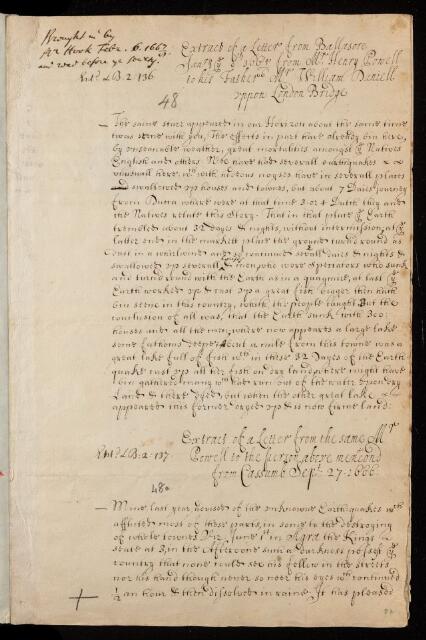 Brought in by
Mr Hook Febr. 6. 1667
and read before ye Society
Entd LB. 2. 136
Extract of a Letter from Ballasore
from Mr Henry Powell
to his Father Mr William Daniell
uppon London Bridge
48
The same starr appeared in our Horizon about the same time
twas seene with you, The effects in part have already bin here,
by unseasonable weather, great mortalities amongst ye Natives
English and others. Wee have had severall earthquakes
unusuall here, wth hideous noyses have in severall places
swallowed up houses and townes, but about 7 Daies journey
from Dacca where were at that time 3 or 4 Dutch they and
the Natives relate this story. That in that place ye Earth
trembled about 32 dayes & nights, without intermission, at ye
latter end in the markett place the ground turnd round as
Dust in a whirlwind and so continued severall daies & nights &
swallowed up severall men who were spectators who sunk
and turnd round with the Earth as in a quagmire, at last ye
Earth worked up & cast up a great fish bigger then hath
bin seene in this country, which the people caught But the
conclusion of all was, that the Earth sunk with 300:
houses and all the men, where now appeares a large lake
some fathoms deepe. About a mile from this towne was a
great lake full of fish wch in these 32 Dayes of the Earth
quake cast up all her fish on dry land, where might have
bin gathered many wch had run out of the water upon dry
Land & there dyed, but when the other great lake
appeared this former dryed up & is now firme land:
Extract of a Letter from the same Mr
Powell to the person above mencond
from Cassumb Sept. 27. 1666.
Entd LB. 2: 137.
48a
Mine last year advised of the unknowne Earthquakes wch
afflicted most of these parts, in some to the destroying
of whole townes June 1st in Agra the Kings
seate at 3, in the Afternoone such a darkness possest ye
country that none could see his fellow in the streets
nor his hand though never so neer his eyes wch continued
½ an hour & then dissolved in raine. It has pleased